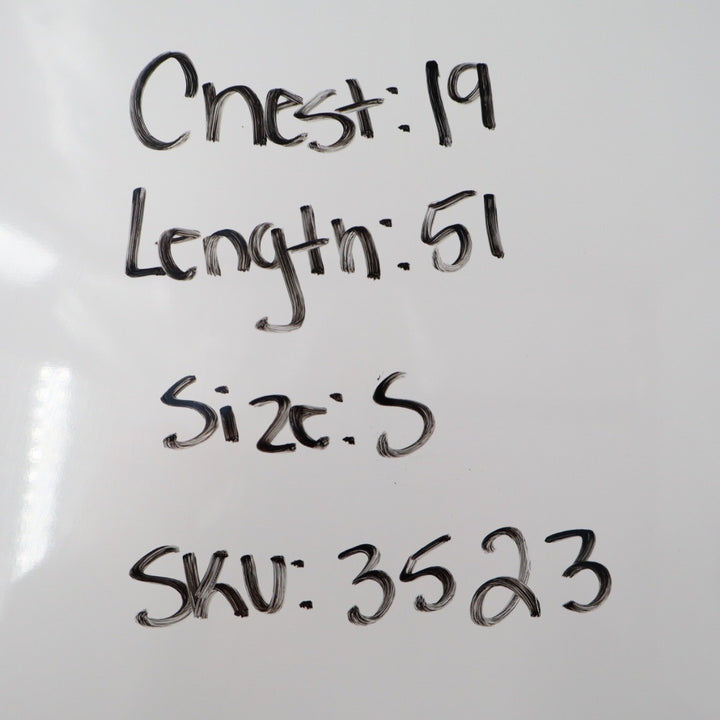 Chest: 19
Length: 51
Size: S
SKU: 3523